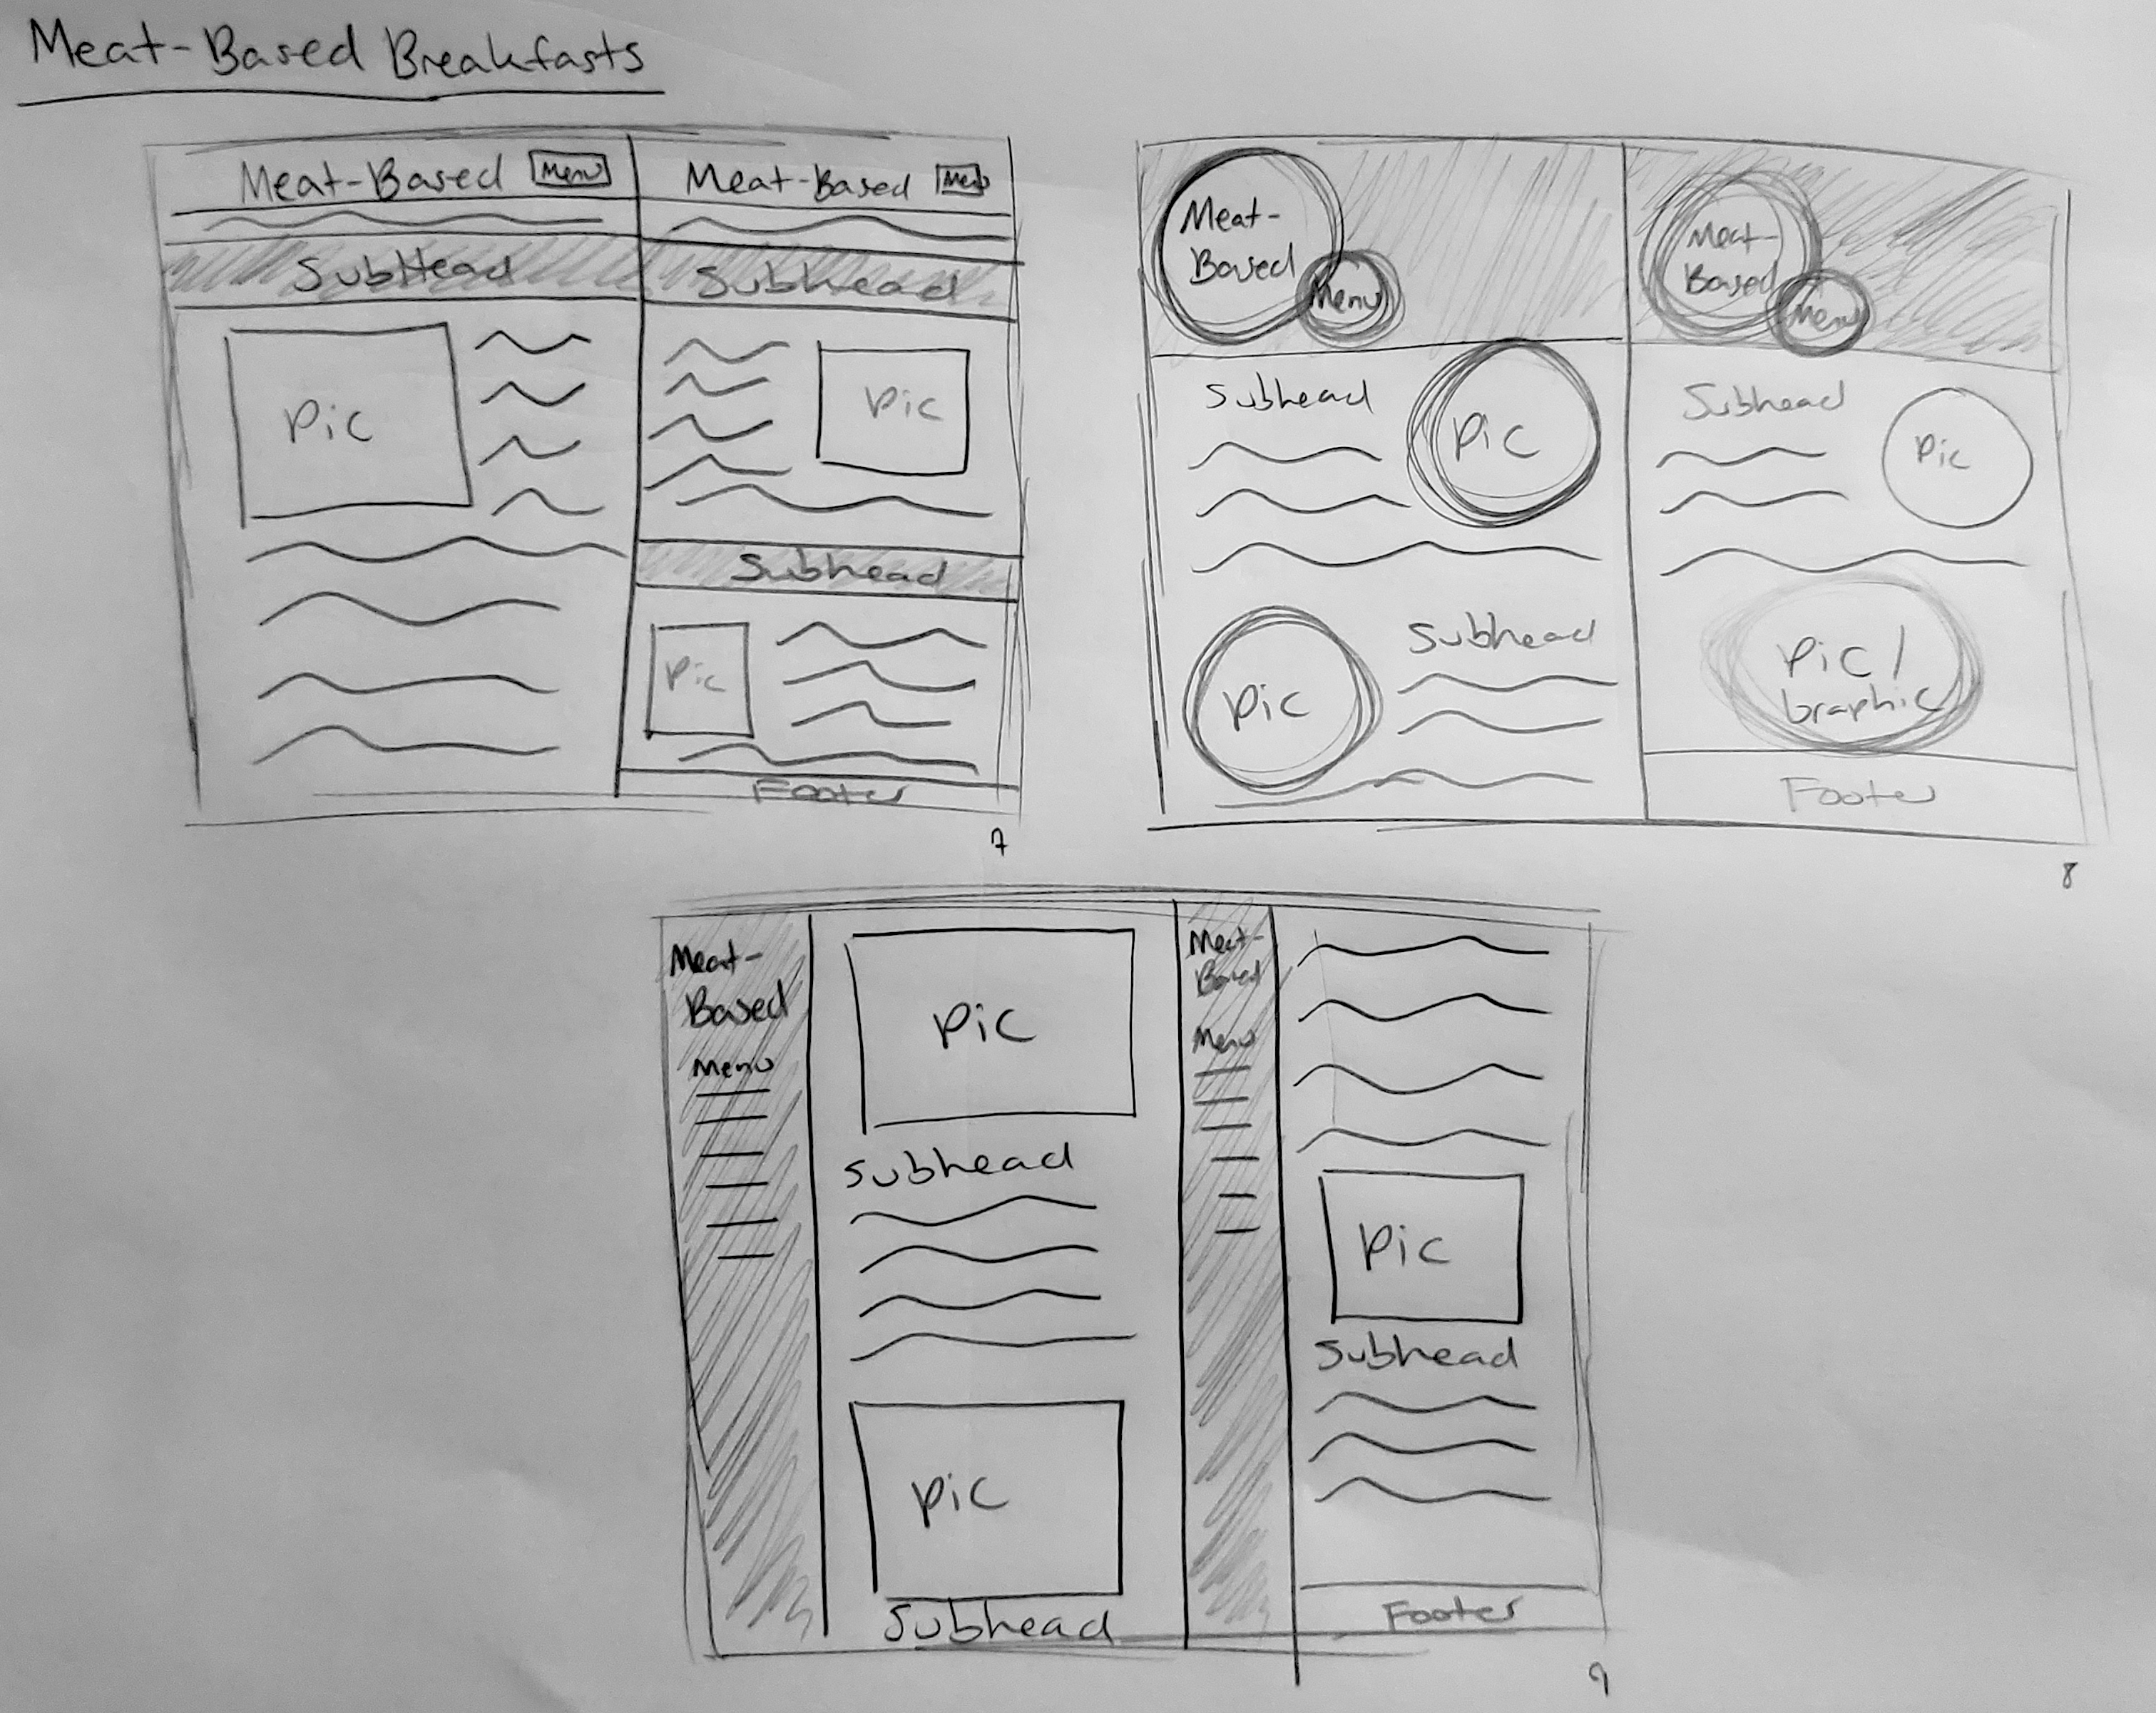 Meat-Based Breakfasts
Meat-Based Menu
SubHead
Pic
Meat-Based Menu
Subhead
Pic
Subhead
Pic
Footer
7
Meat-
Based
Menu
Subhead
Pic
Pic
Subhead
Meat-
Based
Menu
Subhead
Pic
Pic/
Graphic
Footer
8
Meat-
Based
Menu
Pic
Subhead
Pic
Subhead
Meat-
Based
Menu
Pic
Subhead
Footer
9